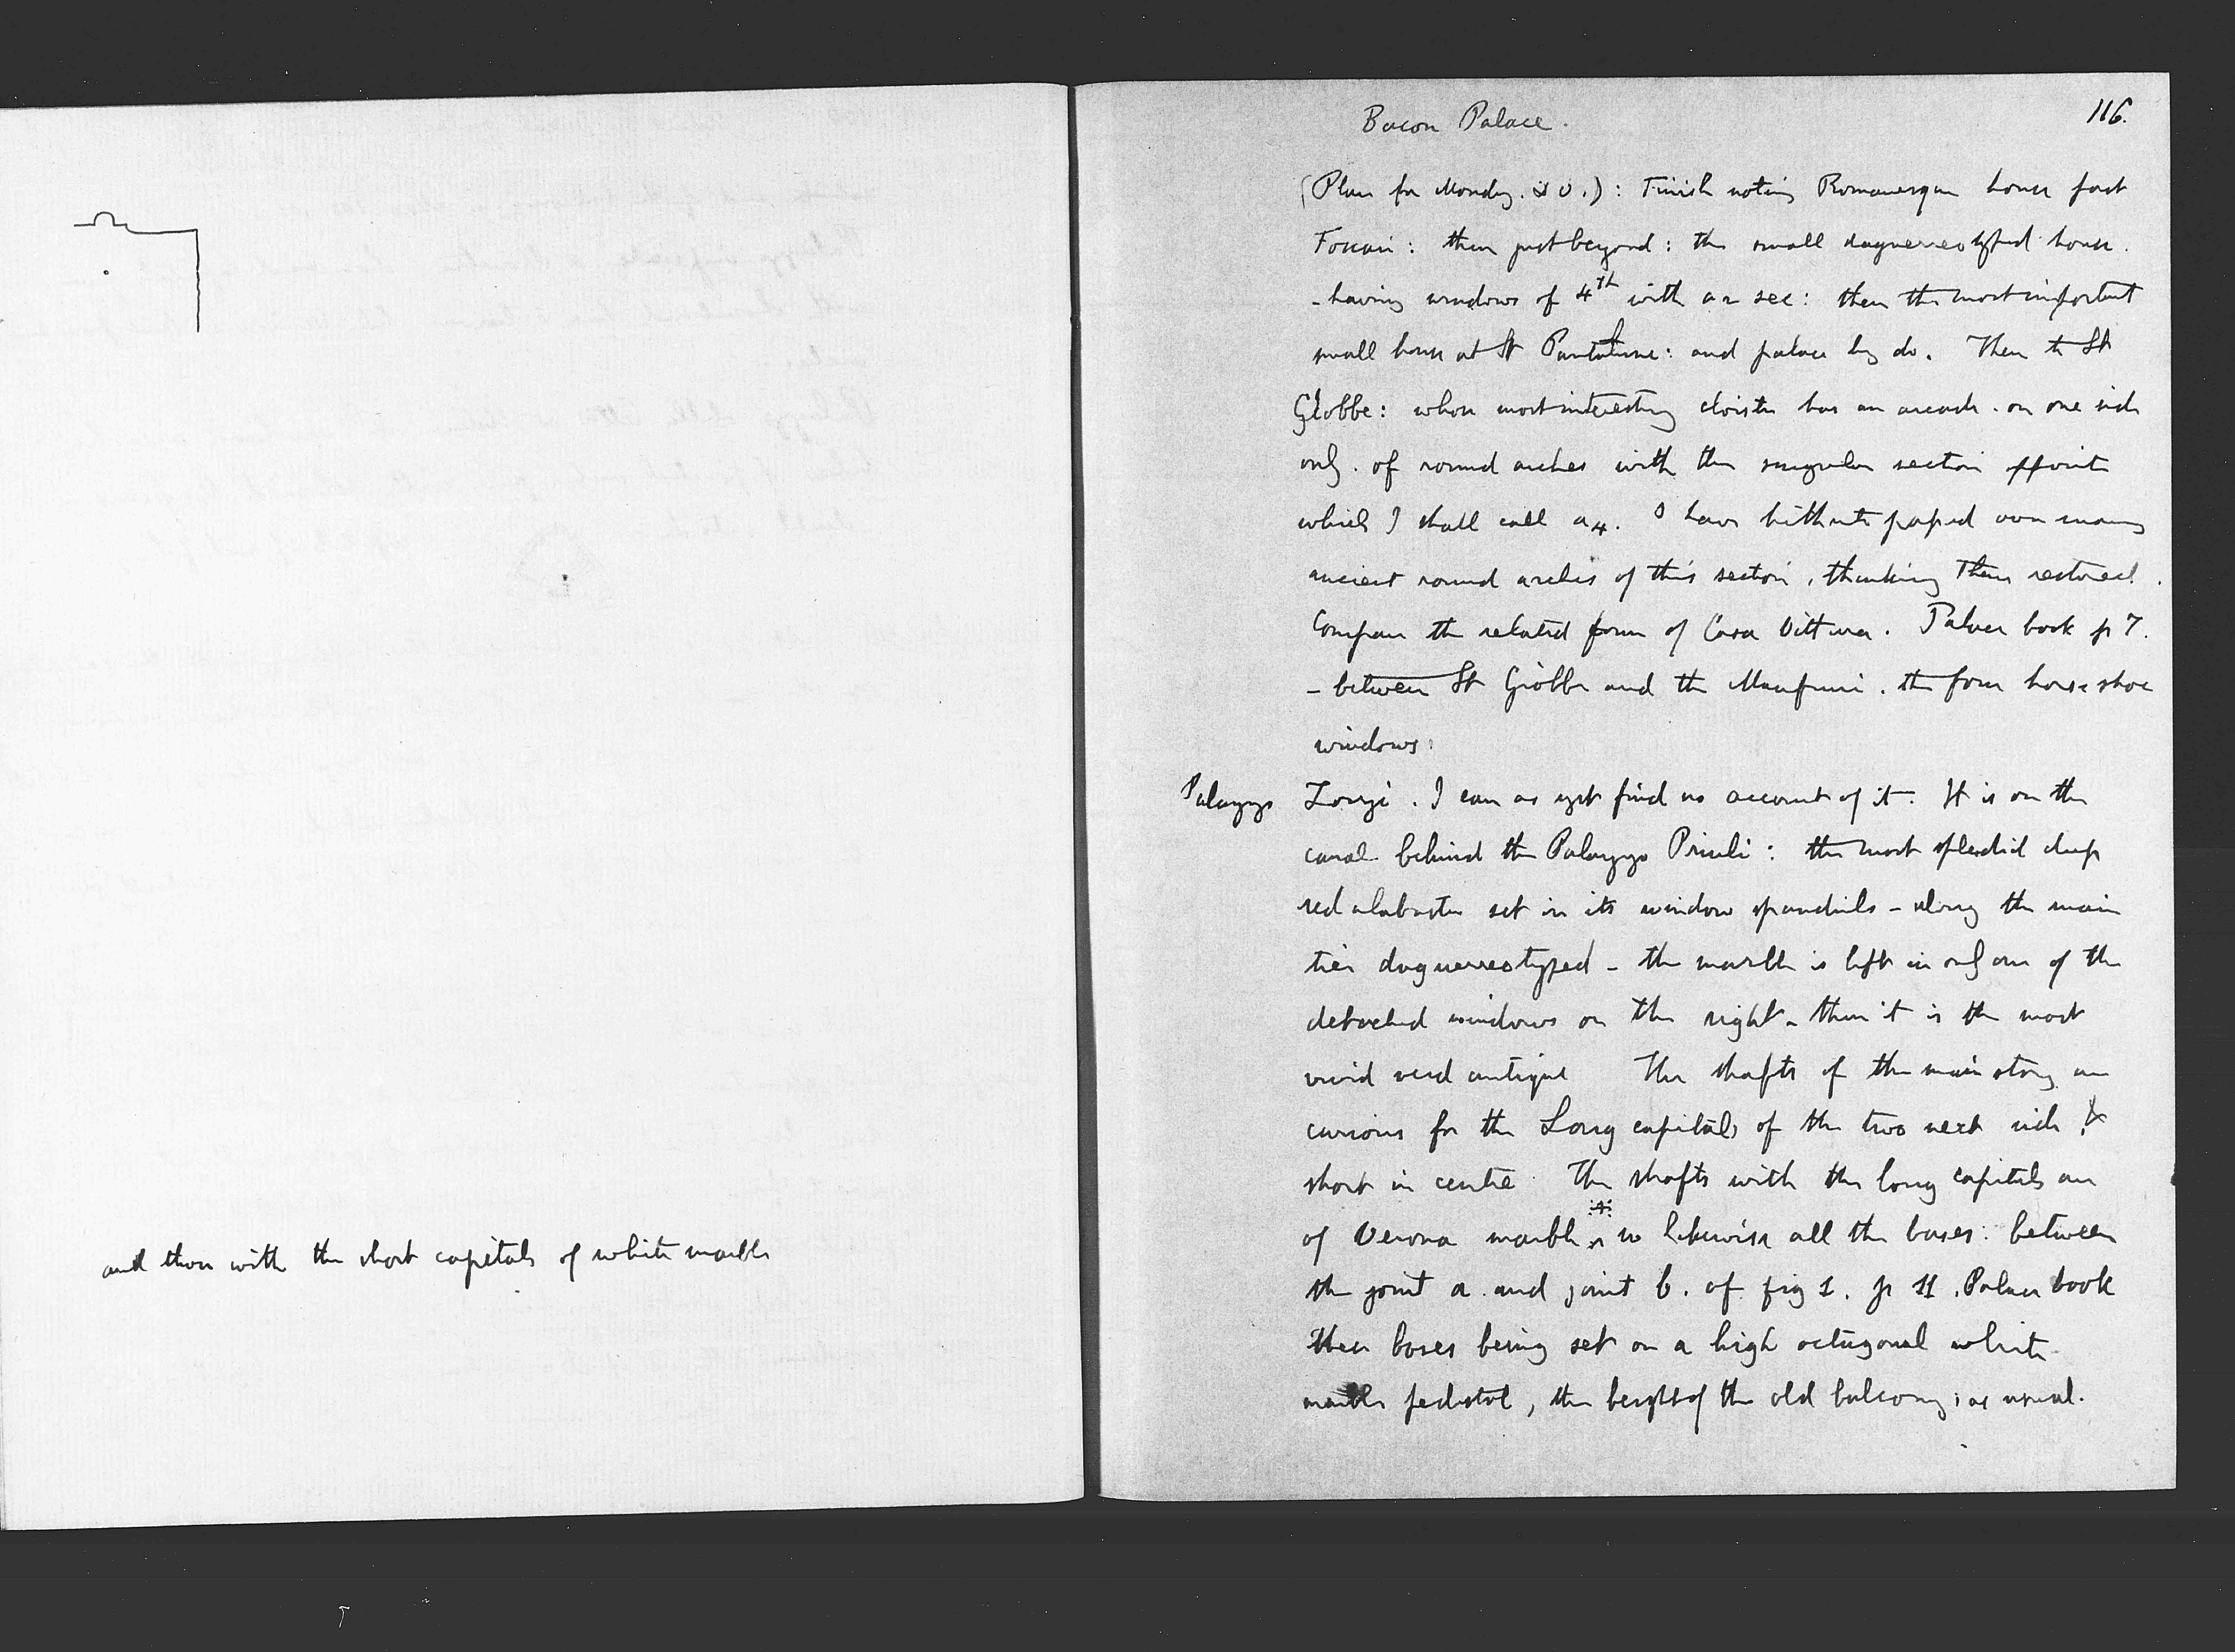 and those with the short capitals of white marble
Bacon Palace.
116.
(Plan for Monday. D.V.): Finish noting Romanesque house past
Foscari: then just beyond: the small daguerreotyped house.
- having windows of 4th with a 2 sec: then the most important
small house at St Pantaleone: and palace by do. Then to St
Giobbe: whose most interesting cloister has an arcade. on one side
only. of round arches with the singular section opposite
which I shall call a4. I have hitherto passed over many
ancient round arches of this section, thinking them restored.
Compare the related form of Casa Vittura. Palace book p 7.
- between St Giobbe and the Manfrini. the four horseshoe
windows:
Palazzo Zorzi. I can as yet find no account of it. It is on the
canal behind the Palazzo Priuli: the most splendid deep
red alabaster set in its window spandrils - along the main
tier daguerreotyped - the marble is left in only one of the
detached windows on the right - then it is the most
vivid verd antique The shafts of the main story are
curious for the Long capitals of the two next side &
short in centre. The shafts with the long capitals are
of Verona marble so likewise all the bases: between
the joint a. and joint b. of fig 1. p 11. Palace book
these bases being set on a high octagonal white
marble pedestal, the height of the old balcony, as usual.